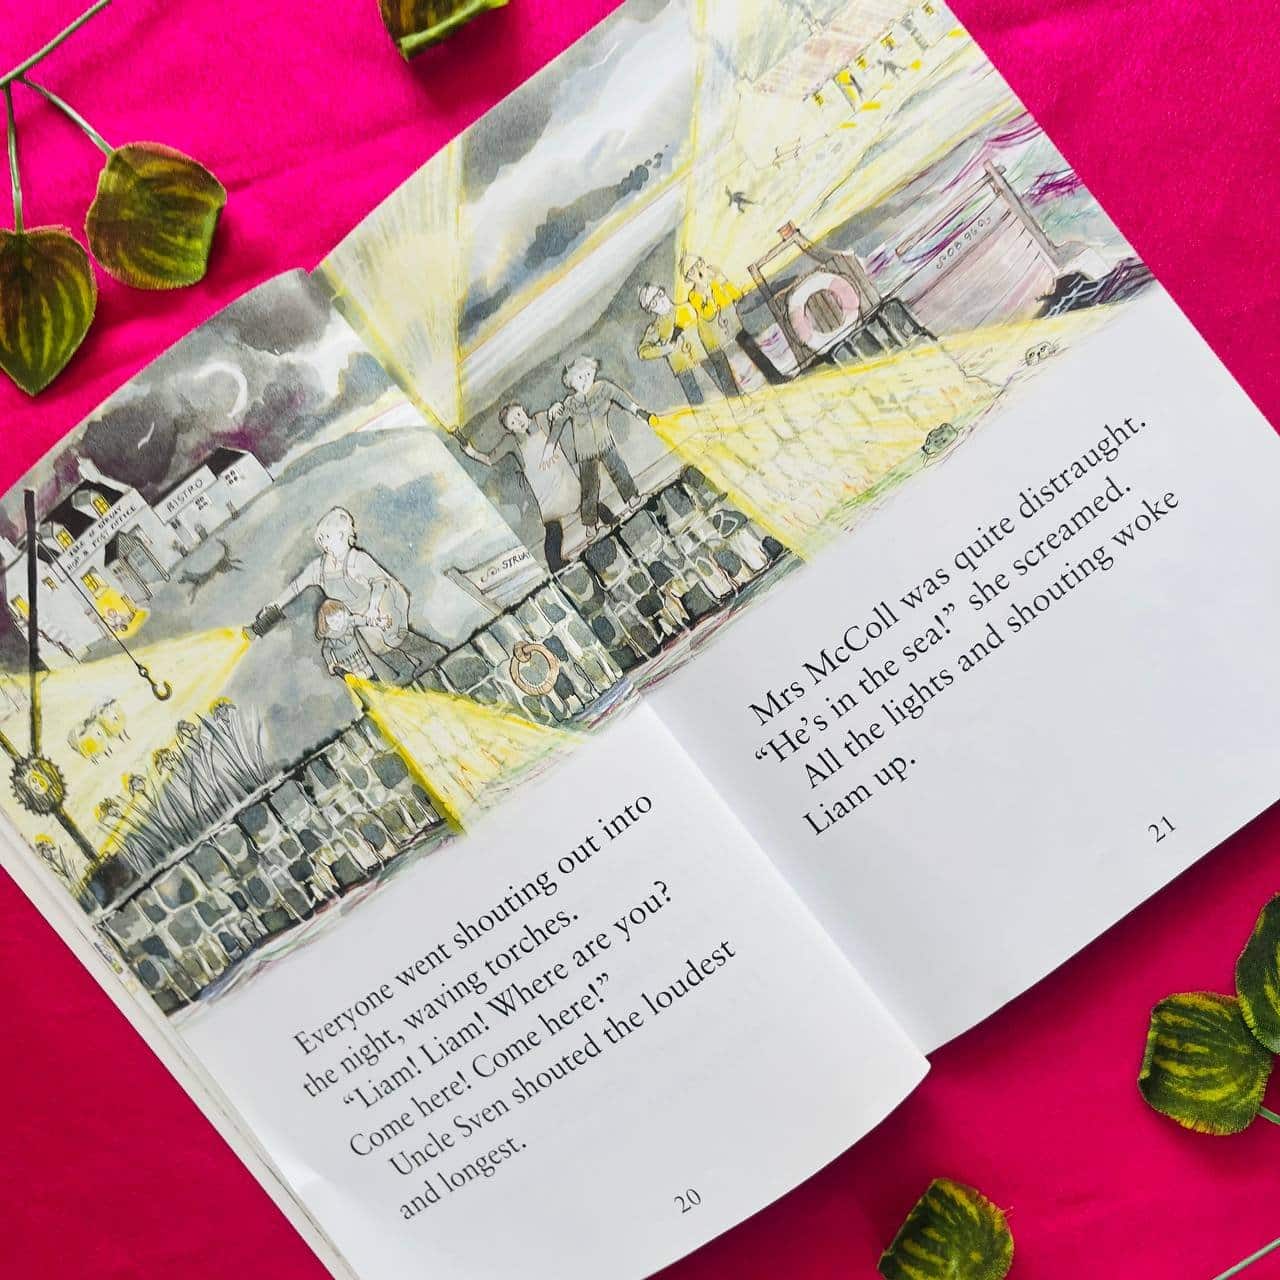 ISLE OF STRUAY
SHOP & POST OFFICE
BISTRO
STRUAY
Everyone went shouting out into
the night, waving torches.
“Liam! Liam! Where are you?
Come here! Come here!”
Uncle Sven shouted the loudest
and longest.
20
Mrs McColl was quite distraught.
“He’s in the sea!” she screamed.
All the lights and shouting woke
Liam up.
21